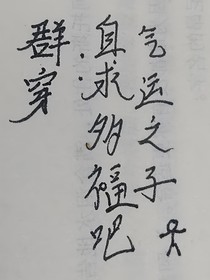 气运之子
自求多福吧
群穿